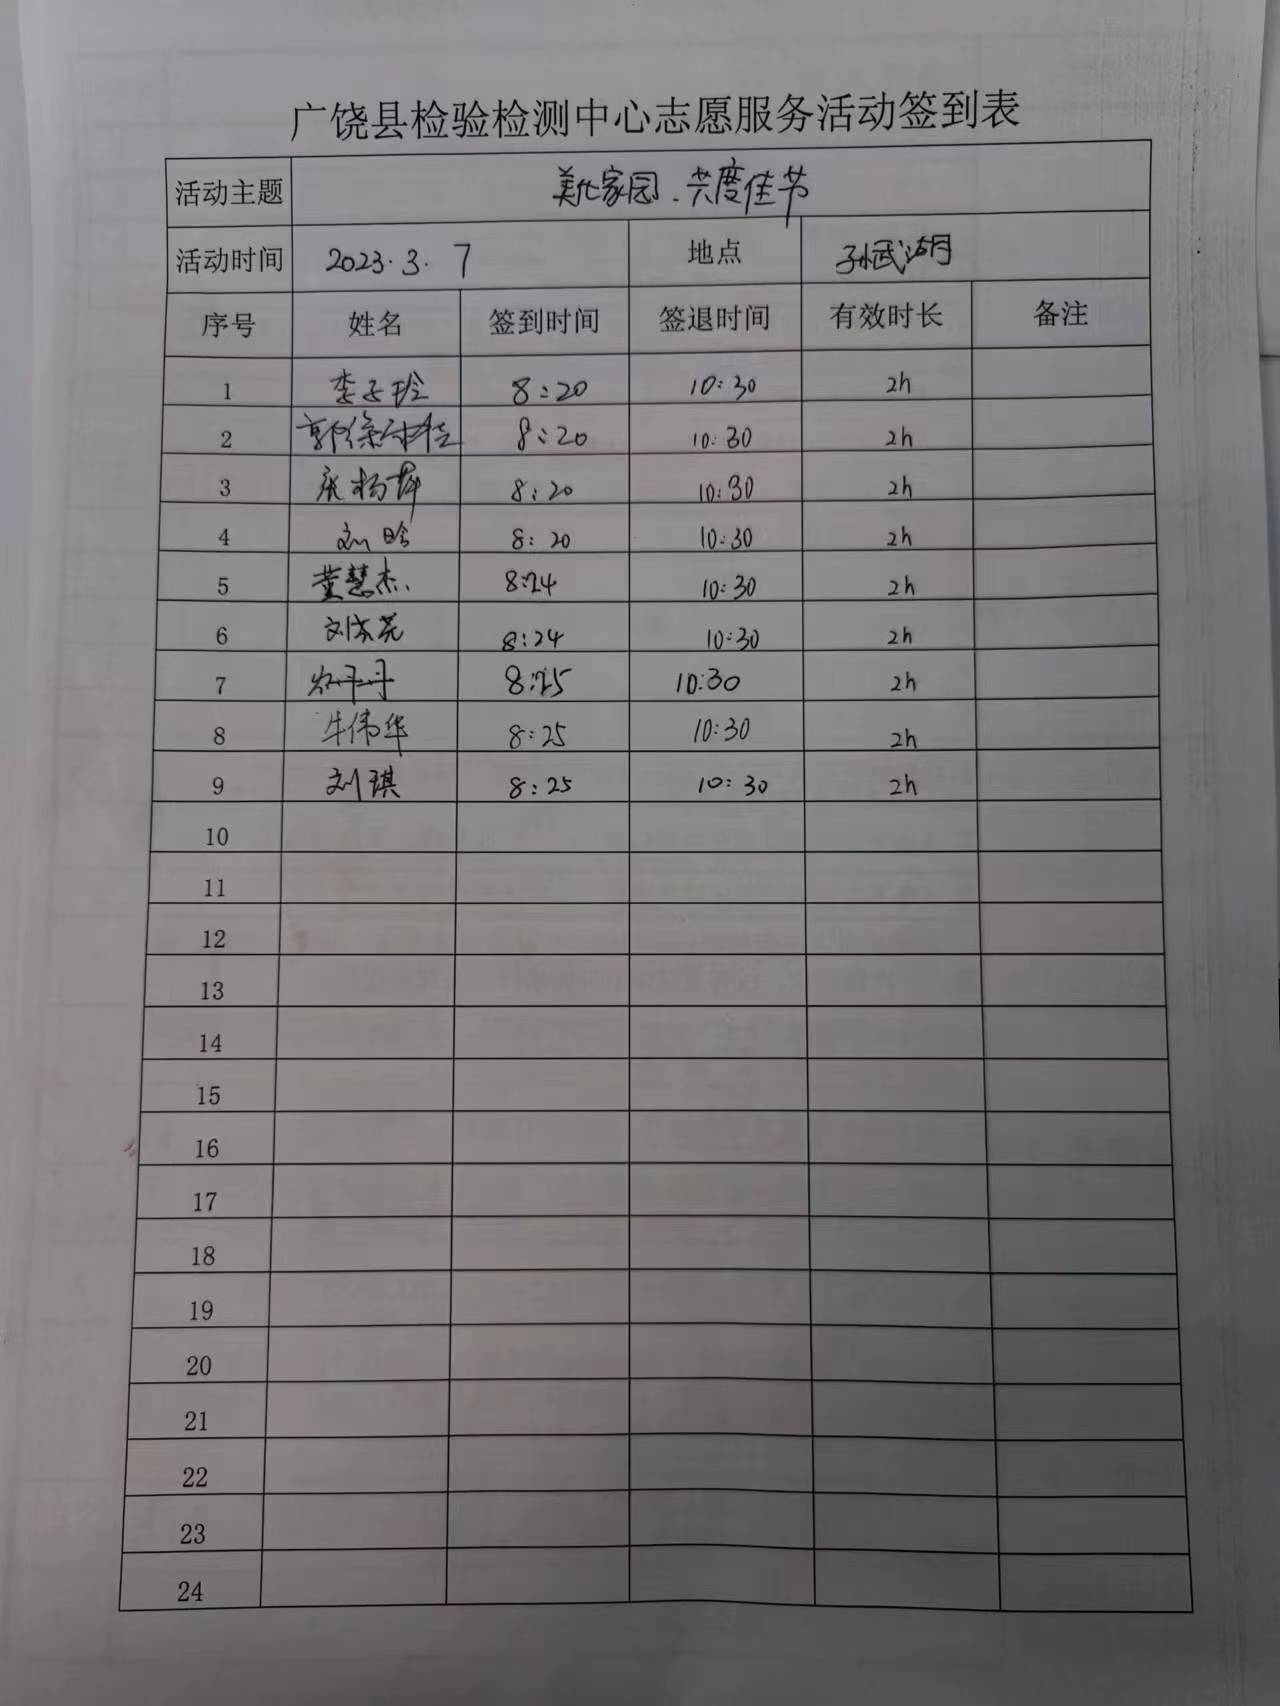 广饶县检验检测中心志愿服务活动签到表
活动主题 美化家园.共度佳节
活动时间 2023.3.7 地点 孙武湖
序号 姓名 签到时间 签退时间 有效时长 备注
1 李子玲 8:20 10:30 2h
2 8:20 10:30 2h
3 8:20 10:30 2h
4 刘晗 8:20 10:30 2h
5 董慧杰 8:24 10:30 2h
6 8:24 10:30 2h
7 8:25 10:30 2h
8 牛伟华 8:25 10:30 2h
9 刘琪 8:25 10:30 2h
10
11
12
13
14
15
16
17
18
19
20
21
22
23
24